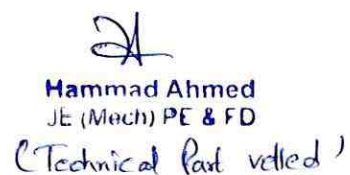 Hammad Ahmed
JE (Mech) PE & FD
(Technical Part vetted)